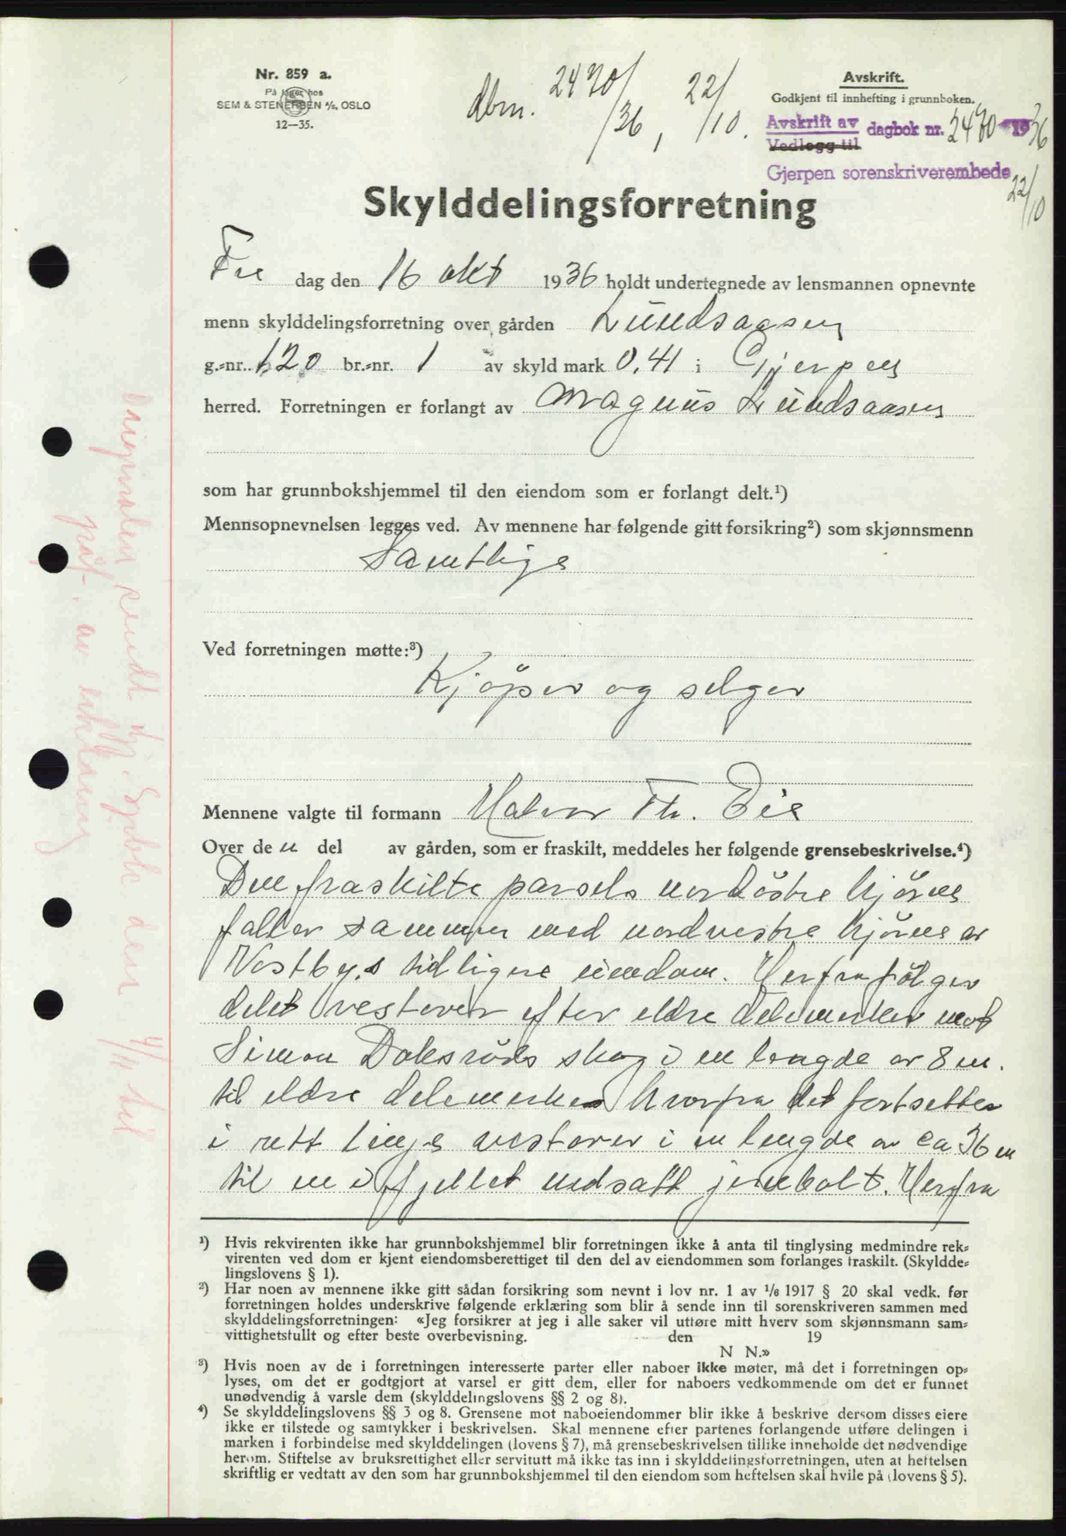 Nr. 859 a.
På lager hos
SEM & STENERSEN A/S, OSLO
12—35.
dbm. 2470/36, 22/10.
Avskrift.
Godkjent til innhefting i grunnboken.
Avskrift av
Vedlegg til
dagbok nr. 2470 - 1936
Gjerpen sorenskriverembede
22/10
Skylddelingsforretning
Fre dag den 16 okt 1936 holdt undertegnede av lensmannen opnevnte
menn skylddelingsforretning over gården Lundsaasen
g.-nr. 120 br.-nr. 1 av skyld mark 0,41 i Gjerpen
herred. Forretningen er forlangt av Magnus Lundsaasen
som har grunnbokshjemmel til den eiendom som er forlangt delt.¹)
Mennsopnevnelsen legges ved. Av mennene har følgende gitt forsikring²) som skjønnsmenn
Samtlige
Ved forretningen møtte:³)
Kjöper og selger
Mennene valgte til formann Halvor Th. Eie
Over den del av gården, som er fraskilt, meddeles her følgende grensebeskrivelse.⁴)
Den fraskilte parsels nordöstre hjörne
faller sammen med nordvestre hjörne av
Vestby,s tidligere eiendom. Herfra fölger
delet vestover efter eldre delemerker mot
Simon Dalsröds skog i en lengde av 8 m.
til eldre delemerke hvorfra det fortsetter
i rett linje vestover i en lengde av ca 36 m
til en i fjellet nedsatt jernbolt. Herfra
¹) Hvis rekvirenten ikke har grunnbokshjemmel blir forretningen ikke å anta til tinglysing medmindre rek-
virenten ved dom er kjent eiendomsberettiget til den del av eiendommen som forlanges fraskilt. (Skyldde-
lingslovens § 1).
²) Har noen av mennene ikke gitt sådan forsikring som nevnt i lov nr. 1 av 1/6 1917 § 20 skal vedk. før
forretningen holdes underskrive følgende erklæring som blir å sende inn til sorenskriveren sammen med
skylddelingsforretningen: «Jeg forsikrer at jeg i alle saker vil utføre mitt hverv som skjønnsmann sam-
vittighetsfullt og efter beste overbevisning. den 19
N N.»
³) Hvis noen av de i forretningen interesserte parter eller naboer ikke møter, må det i forretningen op-
lyses, om det er godtgjort at varsel er gitt dem, eller for naboers vedkommende om det er funnet
unødvendig å varsle dem (skylddelingslovens §§ 2 og 8).
⁴) Se skylddelingslovens §§ 3 og 8. Grensene mot naboeiendommer blir ikke å beskrive dersom disses eiere
ikke er tilstede og samtykker i beskrivelsen. Skal mennene efter partenes forlangende utføre delingen i
marken i forbindelse med skylddelingen (lovens § 7), må grensebeskrivelsen tillike inneholde det nødvendige
herom. Stiftelse av bruksrettighet eller servitutt må ikke tas inn i skylddelingsforretningen, uten at heftelsen
skriftlig er vedtatt av den som har grunnbokshjemmel til den eiendom som heftelsen skal hvile på (lovens § 5).
Originalen sendt den 4/11 til
av erklæring